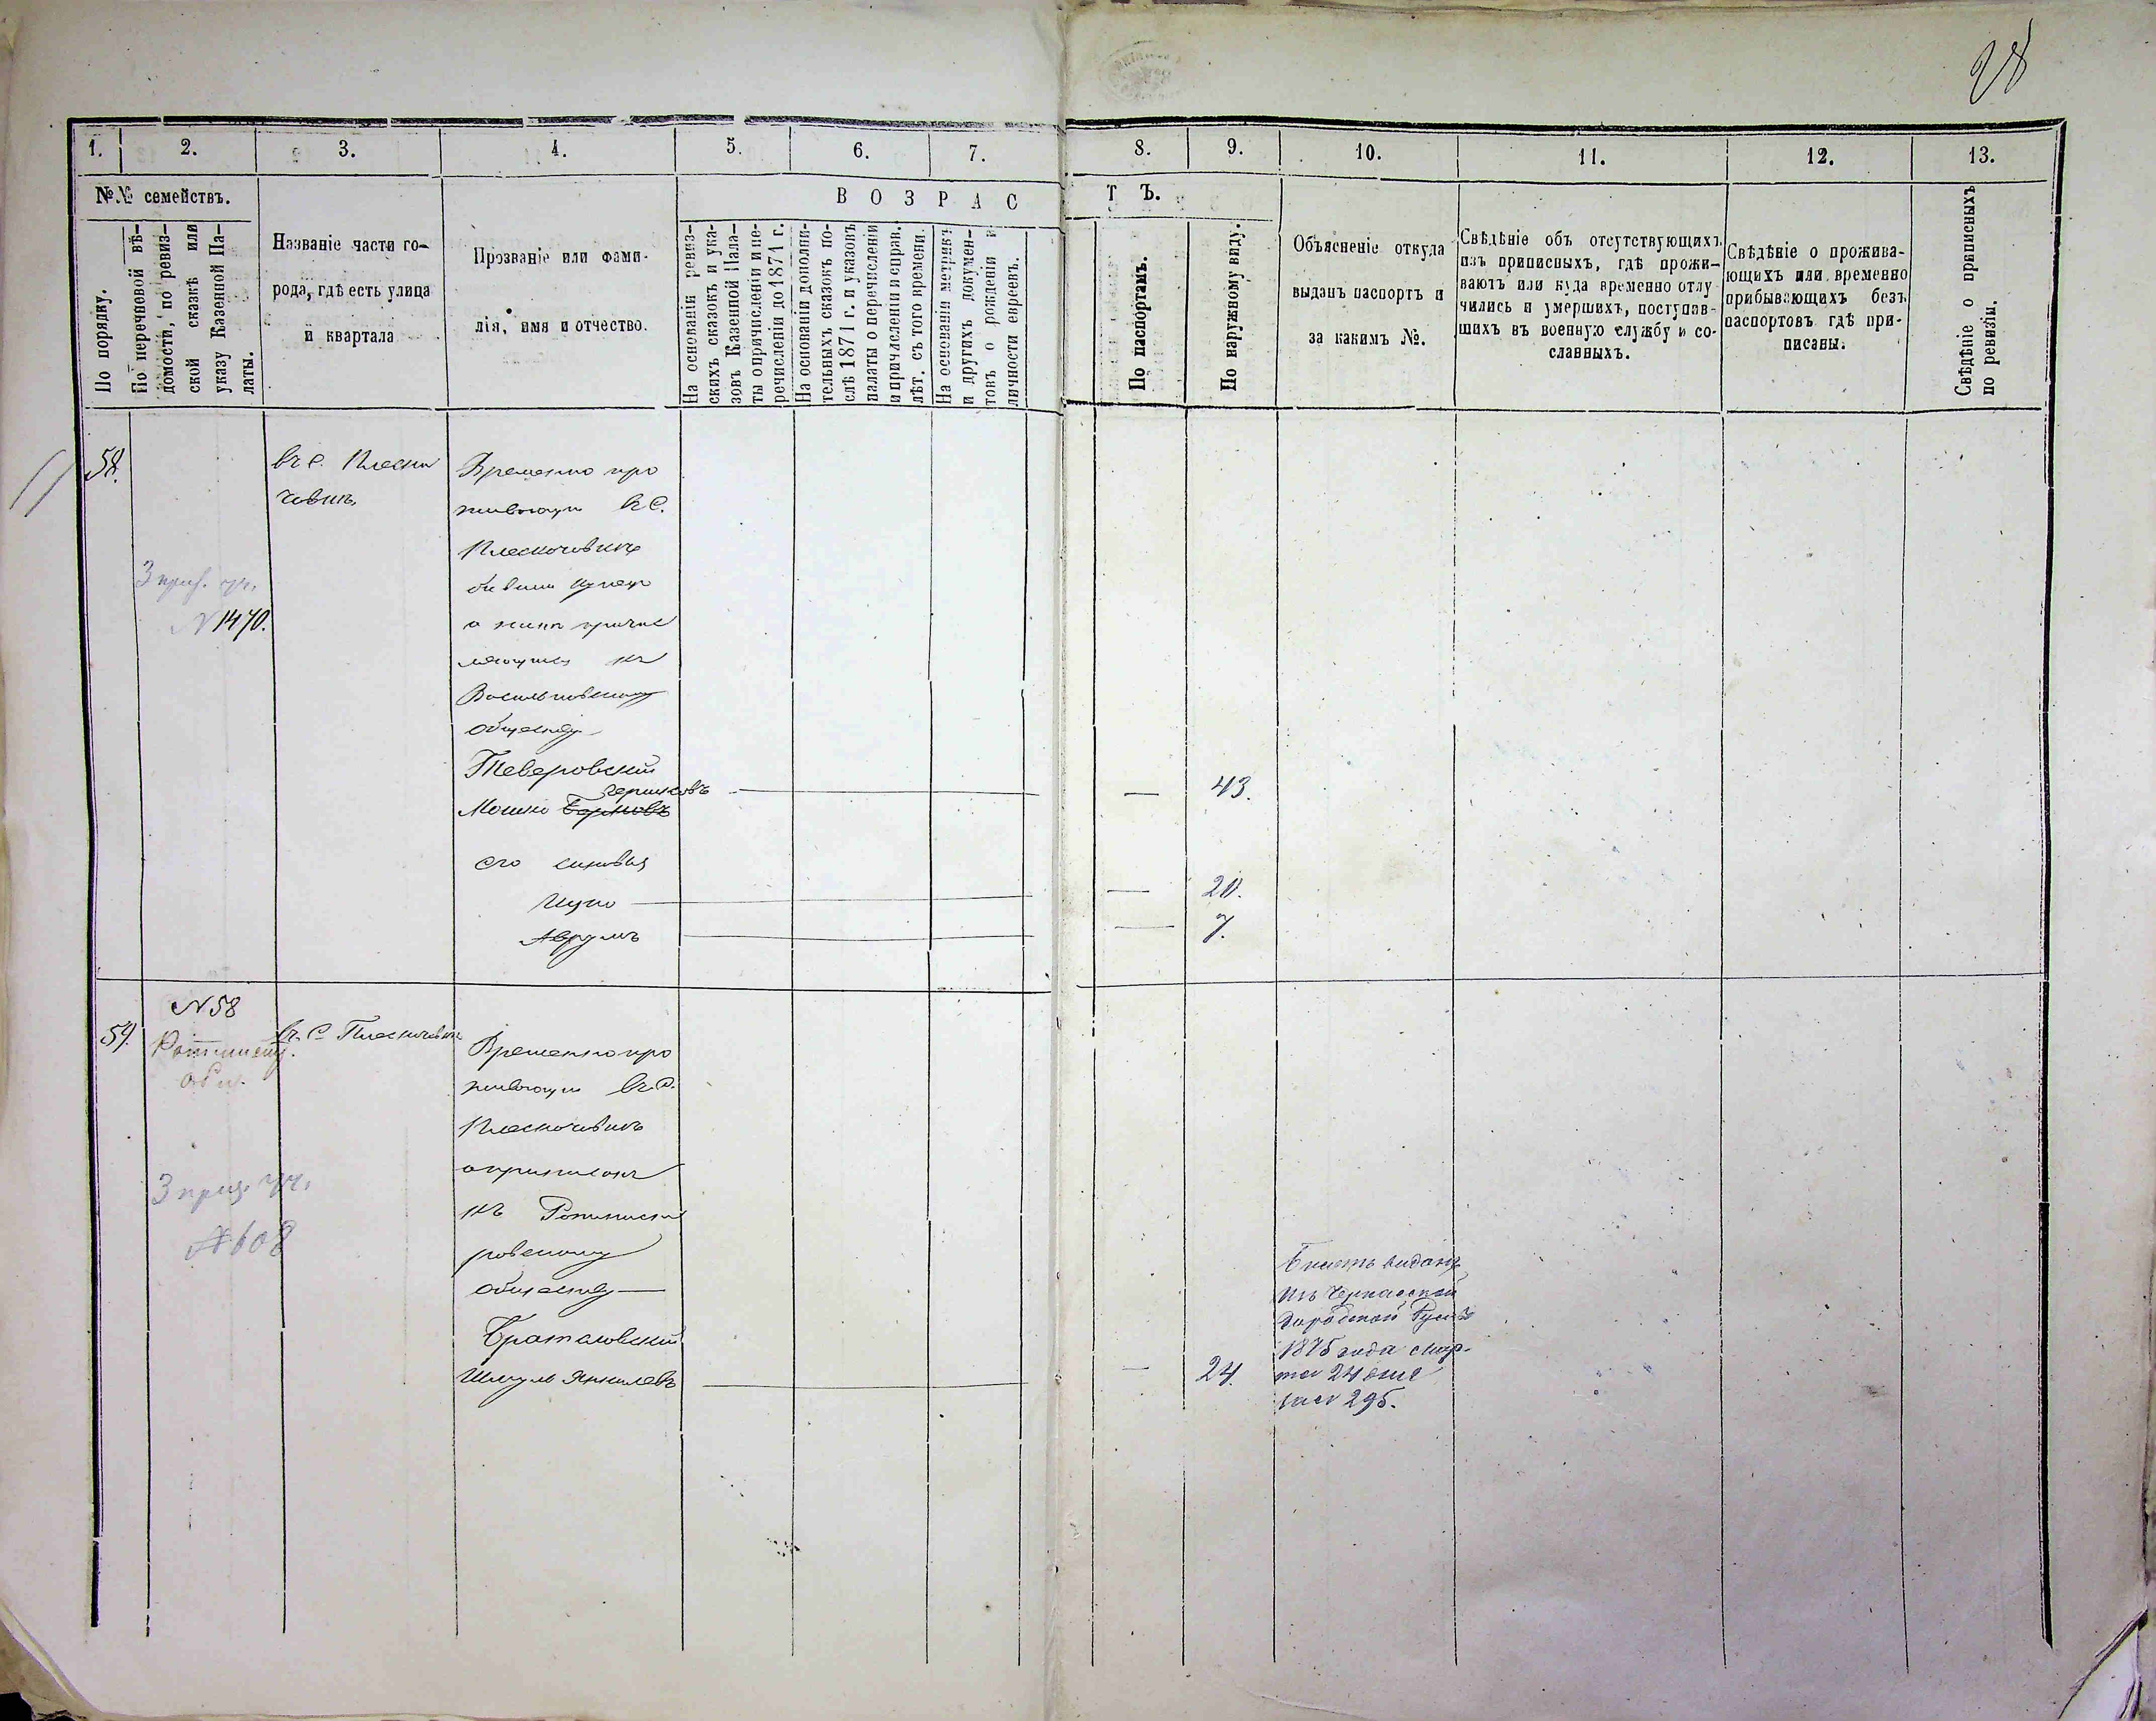 28
1. 2. 3. 4. 5. 6. 7. 8. 9. 10. 11. 12. 13.
№№ семействъ.
По порядку.
По перечневой вѣ-
домости, по ревиз-
ской сказкѣ или
указу Казенной Па-
латы.
Названіе части го-
рода, гдѣ есть улица
и квартала
Прозваніе или фами-
лія, имя и отчество.
ВОЗРАС
ТЪ.
На основаніи ревиз-
скихъ сказокъ и ука-
зовъ Казенной Пала-
ты о причисленіи и пе-
речисленіи до 1871 г.
На основаніи дополни-
тельныхъ сказокъ по-
слѣ 1871 г. и указовъ
палаты о перечисленіи
и причисленіи и справ.
лѣт. съ того времени.
На основаніи метрикъ
и другихъ докумен-
товъ о рожденіи и
личности евреевъ.
По паспортамъ.
По наружному виду.
Объясненіе откуда
выданъ паспортъ и
за какимъ №.
Свѣдѣніе объ отсутствующихъ
изъ приписныхъ, гдѣ прожи-
ваютъ или куда временно отлу-
чились и умершихъ, поступив-
шихъ въ военную службу и со-
сланныхъ.
Свѣдѣніе о прожива-
ющихъ или временно
прибывающихъ безъ
паспортовъ гдѣ при-
писаны.
Свѣдѣніе о приписныхъ
по ревизіи.
58.
въ с. Плеска
чевкѣ
3 приз. уч.
N 1470.
Временно про
живающи въ С.
Плескачевкѣ
бывши купец
а нынѣ причис
ляющись къ
Васильковскому
обществу
Теверовскій
Гершковъ
Мошко Берковъ
его сыновья
Ицко
Аврумъ
43.
20.
7.
59.
N 58
въ С Плескачевкѣ
3 приз. уч.
N 608
Временно про
живающи въ с.
Плескачевкѣ
а приписанъ
къ
ровскому
обществу
Братславскій
Шмуль Янкилевъ
24.
Билетъ виданъ
изъ Черкасской
Городской Думы
1875 года мар-
та 24 дня
за № 295.